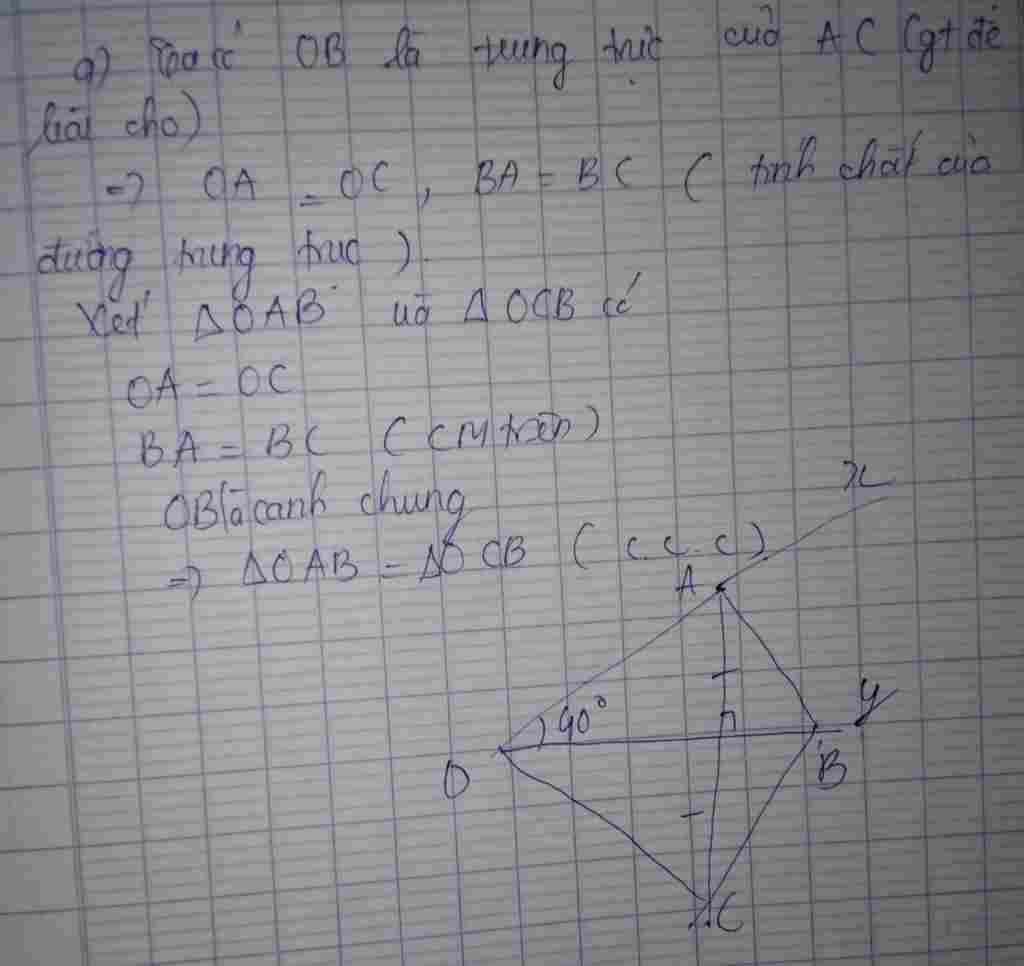 a) Ta có OB là trung trực của AC (gt đề
bài cho)
=> OA = OC, BA = BC ( tính chất của
đường trung trực ).
Xét ΔOAB và ΔOCB có
OA = OC
BA = BC ( CM trên )
OB là cạnh chung
=> ΔOAB = ΔOCB ( c.c.c )
x
A
40°
y
O
B
C